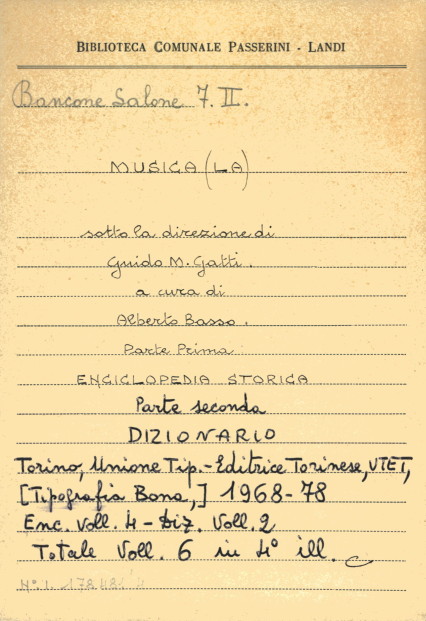 BIBLIOTECA COMUNALE PASSERINI - LANDI
Bancone Salone 7. II.
MUSICA (LA)
sotto la direzione di
Guido M. Gatti.
a cura di
Alberto Basso.
Parte Prima
ENCICLOPEDIA STORICA
Parte seconda
DIZIONARIO
Torino, Unione Tip.-Editrice Torinese, UTET,
[Tipografia Bona,] 1968-78
Enc. Voll. 4 - Diz. Voll. 2
Totale Voll. 6 in 4° ill.
N° I.